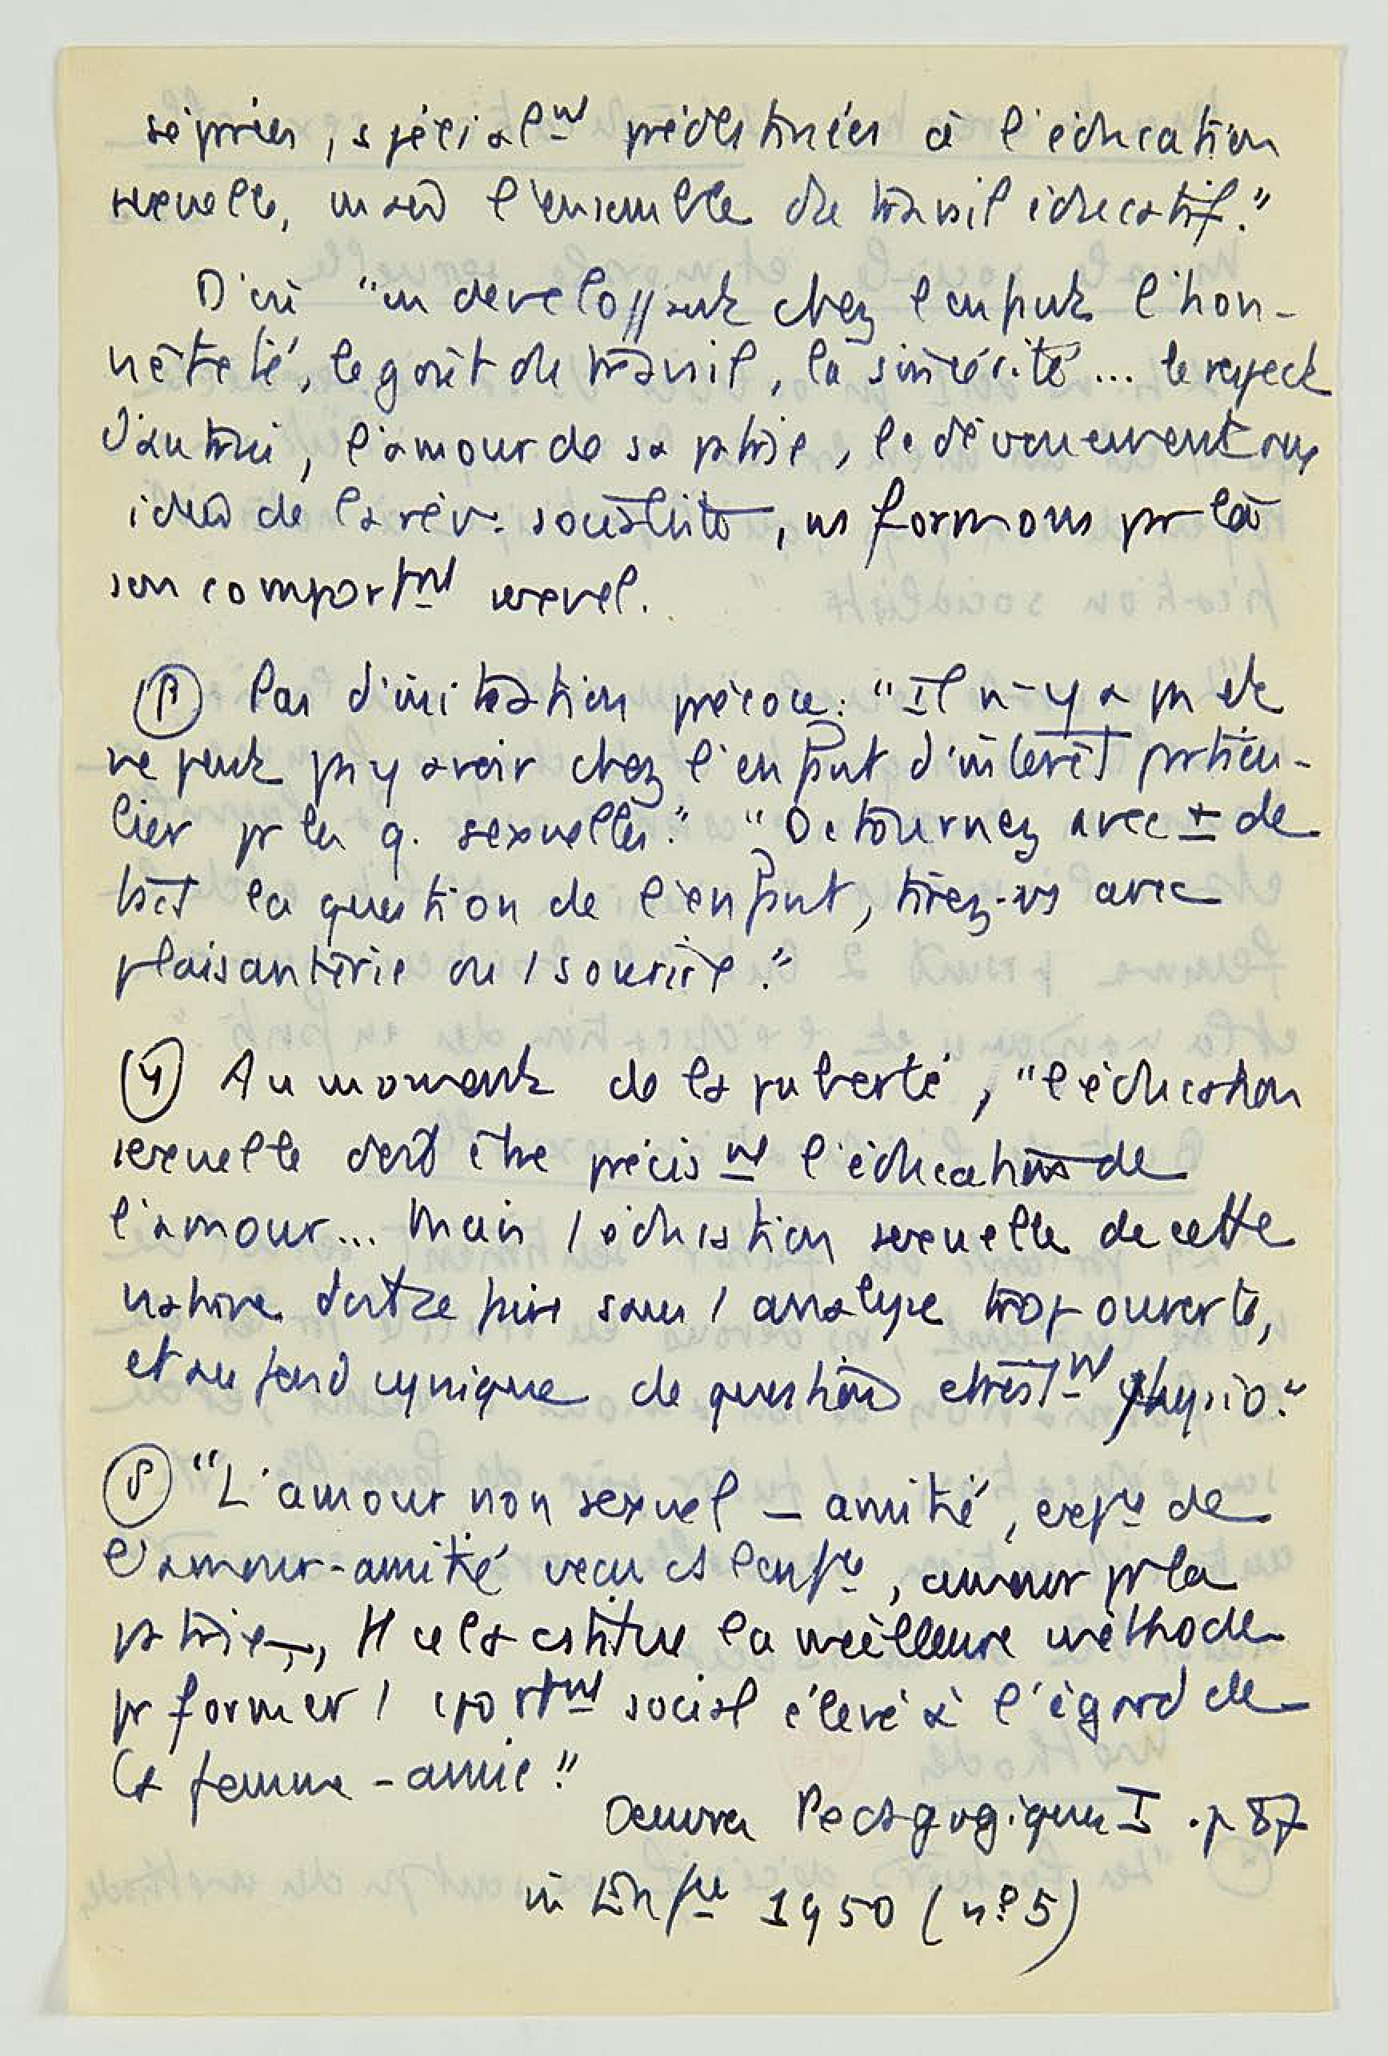 séparées, spécialnt prédestinées à l'éducation
sexuelle, mais l'ensemble du travail éducatif."
D'où "en développant chez l'enfant l'hon-
nêteté, le goût du travail, la sincérité... le respect
d'autrui, l'amour de sa patrie, le dévouement aux
idées de la rév. socialiste, ns formons pr là
son comportmnt sexuel.
β Pas d'initiation précoce: "Il n'y a pas et
ne peut pas y avoir chez l'enfant d'intérêt particu-
lier pr les q. sexuelles." "Détournez avec + de
tact la question de l'enfant, tirez-vs avec
plaisanterie ou 1 sourire."
γ Au moment de la puberté, "l'éducation
sexuelle doit être précisnt l'éducation de
l'amour... Mais 1 éducation sexuelle de cette
nature doit se faire sans 1 analyse trop ouverte,
et au fond cynique de questions étroitnt physio."
δ "L'amour non sexuel - amitié, expce de
l'amour-amitié vécu ds l'enfce, amour pr la
patrie, tt cela constitue la meilleure méthode
pr former 1 cportmnt social élevé à l'égard de
la femme - amie."
Oeuvres Pédagogiques I . p 87
in Enfce 1950 (n° 5)